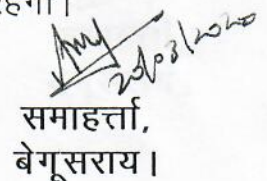 रहेगा।
20/03/2020
समाहर्त्ता,
बेगूसराय।